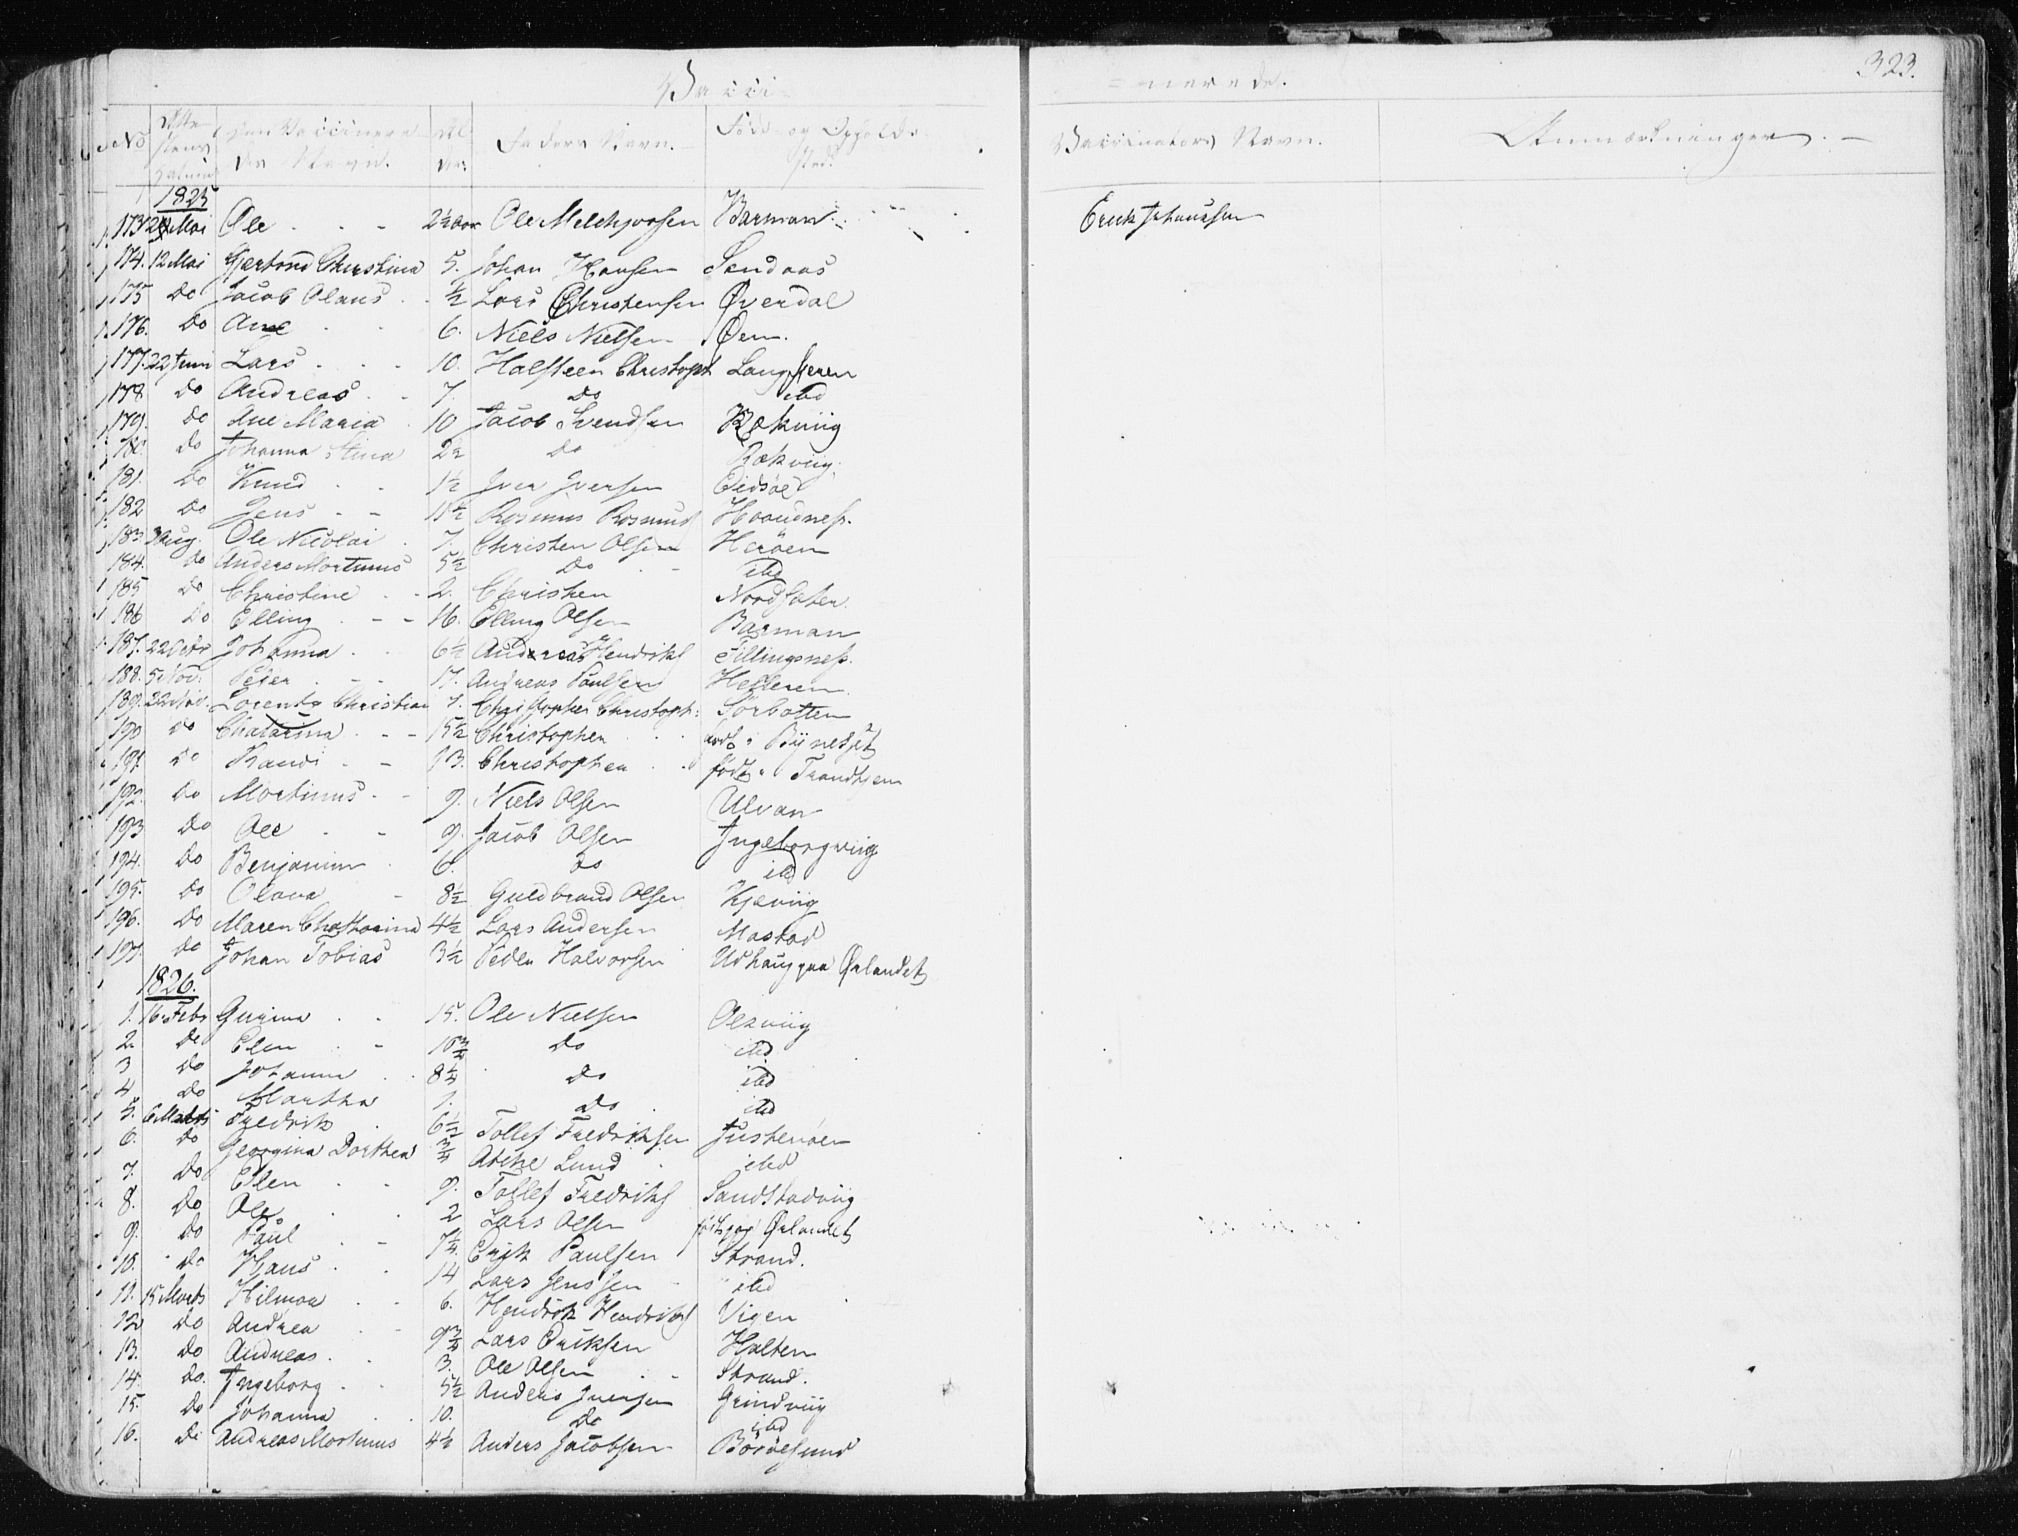 323.
Vacci= =nerede.
No Atte-stens Datum Den Vaccinere-des Navn. Al-der. Faders Navn. Føde- og Opholds-sted.
Vaccinators Navn. Anmærkninger.
1825
173 Mai Ole 2½ Aar Ole Melchjorsen Barman Erick Johanssen
174. 12 Mai Gjertrud Christina 5. Johan Hansen Sandaas
175 Do Jacob Olaus ½ Lars Christensen Øverdal
176. Do Ane 6. Niels Nielsen Øen.
177. 22 Juni Lars 10. Halsteen Christoph Langsteren
178 Do Andreas 7. Do ibd
179. Do Ane Maria 10 Jacob Svendsen Rækviig
180. Do Johanna Stina 2 Do Rækviig
181. Do Knud 1½ Iver Iversen Eidsøe
182 Do Jens 11½ Rasmus Rasmus Havndness.
183 Aug. Ole Nicolai 7. Christen Olsen Herøen
184. Do Anders Martinus 5½ Do ibd
185 Do Christine 2. Christen Nordsæter
186 Do Elling 16. Elling Olsen Barman
187. 22 Octr Johanna 6½ Andreas Hendriks Fillingsness.
188. 5 Nov: Peter 17. Andreas Paulsen Helleren
189. 22 Nov. Lorents Christian 7. Christopher Christoph: Sørbotten
190 Do Chatarina 15½ Christopher født i Byneset
191. Do Randi 13. Christopher født i Trondhjem
192. Do Martinus 9. Niels Olsen Ulvan
193 Do Ole 9. Jacob Olsen Ingeborgviig
194. Do Benjamin 6. Do ibd
195. Do Olava 8½ Guldbrand Olsen Kjæviig
196. Do Maren Chatharina 4½ Lars Andersen Mastad
197. Do Johan Tobias 3½ Peder Halvorsen Udhaug paa Ørlandet
1826.
1. 16 Febr Gurina 15. Ole Nielsen Olsviig
2. Do Elen 10¾ Do ibd
3 Do Johanna 8¼ Do ibd
4. Do Martha 1. Do ibd
5. 6 Marts Fredrik 6½ Tollef Fredriksen Justenøen
6. Do Georgina Dorthea ¾ Atthe Lund ibd
7. Do Elen 9. Tollef Fredriks Sandstadviig
8. Do Ole 2 Lars Olsen født paa Ørlandet
9. Do Paul 7¼ Erik Paulsen Strand.
10. Do Hans 14 Lars Jenssen ibd
11. 15 Marts Hilmoa 6. Hendrik Hendriks Vigen
12 Do Andrea 9¾ Lars Eriksen Holten
13. Do Andreas 3. Ole Olsen Strand.
14. Do. Ingeborg 5½ Anders Iversen Grindviig
15. Do Johanna 10. Do ibd
16. Do Andreas Martinus 4½ Anders Jacobsen Børøesund